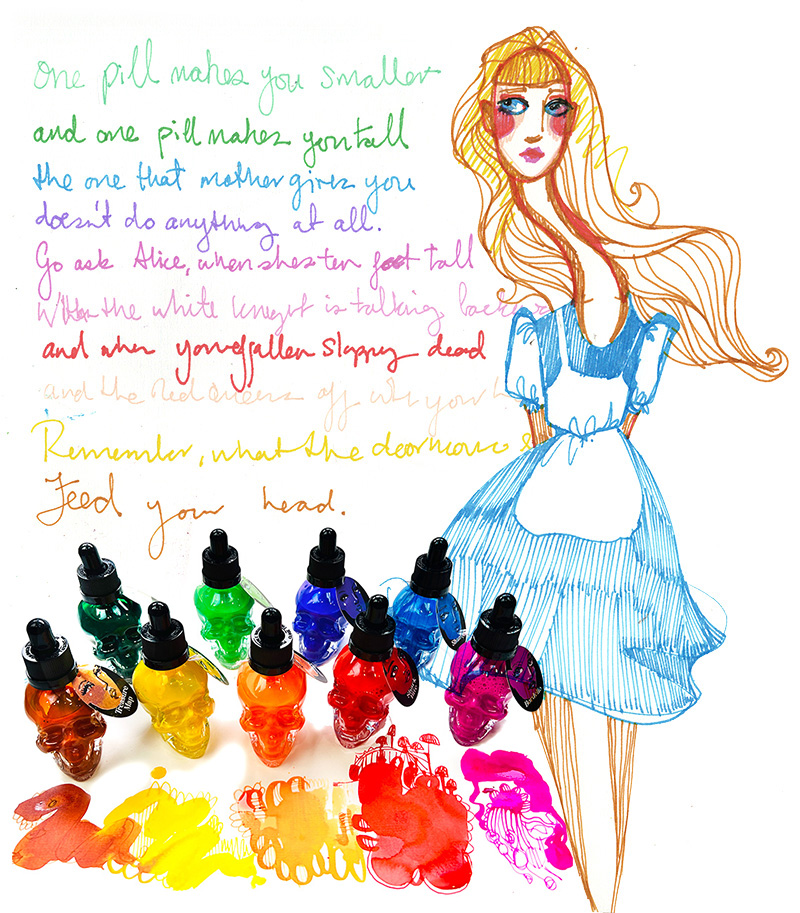 One pill makes you smaller
and one pill makes you tall
the one that mother gives you
doesn't do anything at all.
Go ask Alice, when shes ten foot tall
When the white knight is talking backw
and when you've fallen sloppy dead
and the Red Queens off with your h
Remember, what the doormouse s
Feed your head.
Treasure
Map